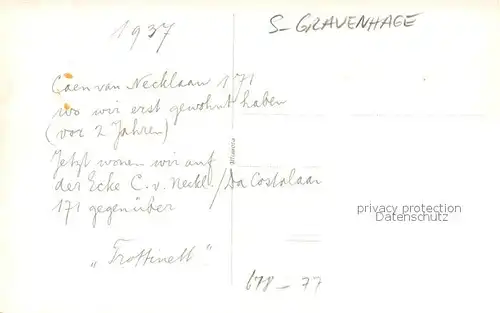 1937
S- GRAVENHAGE
Caen van Necklaan 171
wo wir erst gewohnt haben
(vor 2 Jahren)
Jetzt wonen wir auf
der Ecke C. v. Neckl./Da Costalaan
171 gegenüber
privacy protection
Datenschutz
"Trottinett"
678 - 77